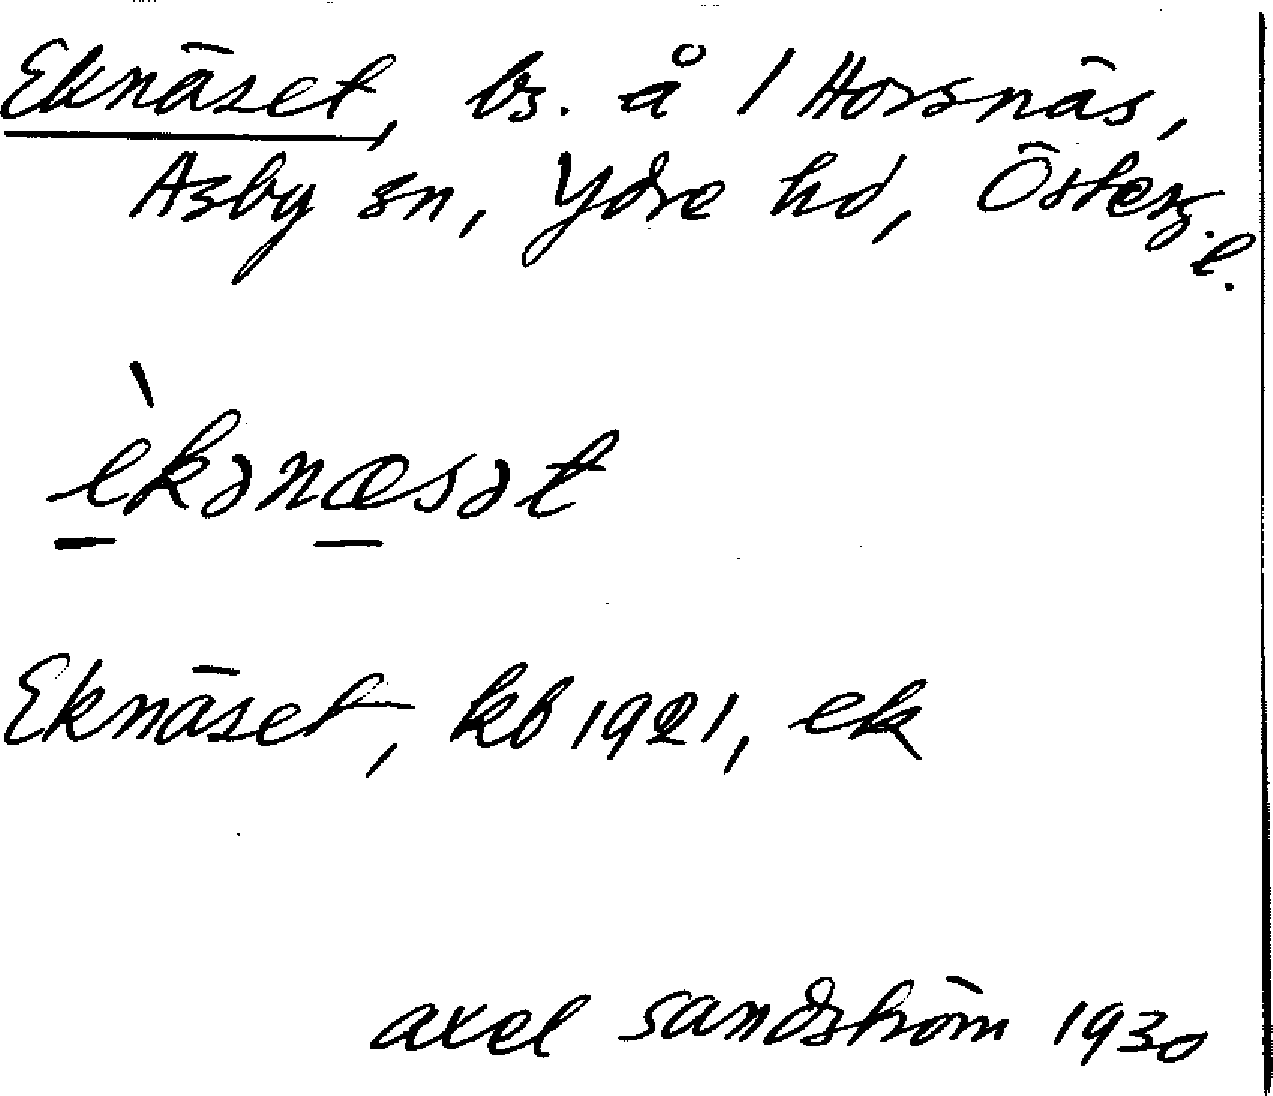 Eknäset, bs. å 1 Horsnäs,
Asby sn, Ydre hd, Österg.
l.
èkənæsət
Eknäset, kb 1921, ek
axel sandström 1930